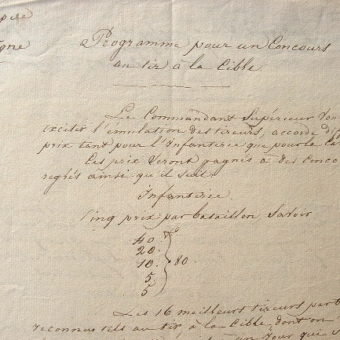 pire
gne
Programme pour un Concours
au tir à la Cible.
Le Commandant Supérieur
exciter l'émulation des tireurs, accorde
prix tant pour l'Infanterie que pour la
Ces prix seront gagnés à des conco
reglés ainsi qu'il suit.
Infanterie
Cinq prix par bataillon Savoir
40
20
10 80.
5
5
Les 16 meilleurs tireurs par
reconnus tels au tir à la Cible, dont on
un jour qui s